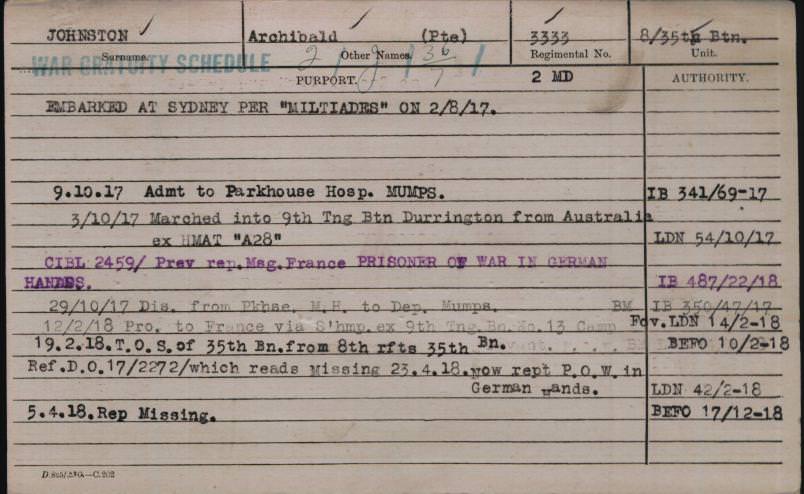 JOHNSTON Archibald (Pte) 3333 8/35th Btn.
Surname. Other Names. Regimental No. Unit.
WAR GRATUITY SCHEDULE
PURPORT. 2 MD AUTHORITY.
EMBARKED AT SYDNEY PER "MILTIADES" ON 2/8/17.
9.10.17 Admt to Parkhouse Hosp. MUMPS. IB 341/69-17
3/10/17 Marched into 9th Tng Btn Durrington from Australia
ex HMAT "A28" LDN 54/10/17
CIBL 2459/ Prev rep.Msg.France PRISONER OF WAR IN GERMAN
HANDS. IB 487/22/18
29/10/17 Dis. from Pkhse. M.H. to Dep. Mumps. BM IB 350/47/17
12/2/18 Pro. to France via S'hmp.ex 9th Tng.Bn.No.13 Camp Fov.LDN 14/2-18
19.2.18.T.O.S.of 35th Bn.from 8th rfts 35th Bn. BEFO 10/2-18
Ref.D.O.17/2272/which reads Missing 23.4.18.now rept P.O.W.in
German Hands. LDN 42/2-18
5.4.18.Rep Missing. BEFO 17/12-18